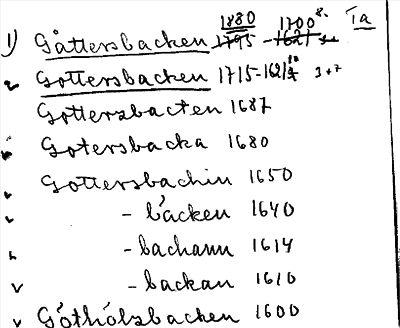 1880 1700 8. Ia
1) Gåttersbacken 1795 - 1621
Gottersbacken 1715-1621 3+7
Gottersbacten 1687
Gotersbacka 1680
Gottersbachin 1650
- båcken 1640
- bachann 1614
- backan 1610
Götholzbacken 1600